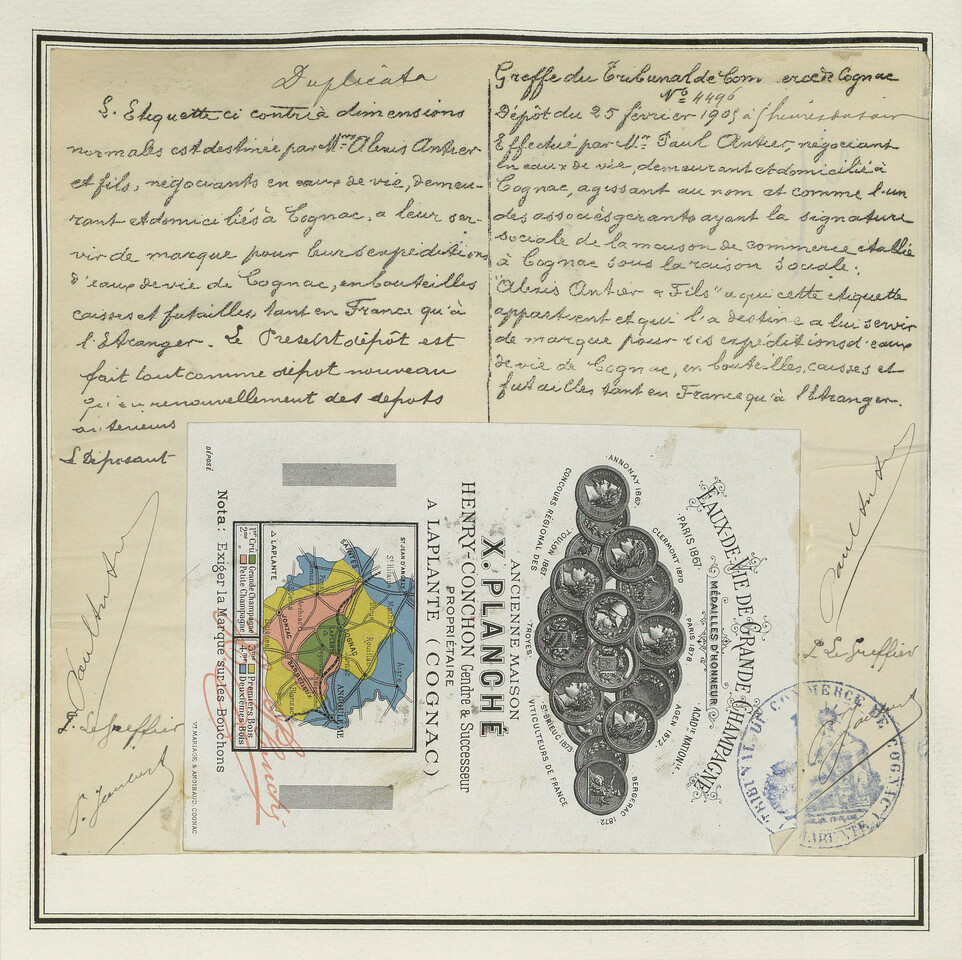 Duplicata
L'Etiquette ci contre à dimensions
normales est destinée par Mrs Alexis Antier
et fils, négociants en eaux de vie, demeu-
rant et domiciliés à Cognac, a leur ser-
vir de marque pour leurs expeditions
d'eaux de vie de Cognac, en bouteilles
caisses et futailles, tant en France qu'à
l'Etranger. Le Present dépôt est
fait tout comme dépot nouveau
qu'en renouvellement des depots
anterieurs
Le Déposant
Paul Antier
Le Greffier
Greffe du Tribunal de Com erce de Cognac
No 4496
Dépôt du 25 février 1905 à heures du soir
Effectué par Mr Paul Antier, négociant
en eaux de vie, demeurant et domicilié à
Cognac, agissant au nom et comme l'un
des associés gerants ayant la signature
sociale de la maison de commerce etablie
à Cognac sous la raison sociale:
"Alexis Antier & Fils" a qui cette etiquette
appartient et qui l'a destine a lui servir
de marque pour ses expeditions d'eaux
de vie de Cognac, en bouteilles, caisses et
futailles tant en France qu'à l'Etranger.
Paul Antier
Le Greffier
TRIBUNAL DE COMMERCE DE COGNAC
CHARENTE
EAUX-DE-VIE DE GRANDE CHAMPAGNE
MÉDAILLES D'HONNEUR
PARIS 1867.
PARIS 1878
ACADIE NATIONLE.
CLERMONT 1870
AGEN 1872.
ANNONAY 1862.
BERGERAC 1872.
CONCOURS RÉGIONAL DES VITICULTEURS DE FRANCE
TOULON 1867.
TROYES.
ST BRIEUC 1873
ANCIENNE MAISON
X. PLANCHÉ
HENRY-CONCHON Gendre & Successeur
PROPRIÉTAIRE
A LAPLANTE (COGNAC)
ST JEAN D'ANGELY
St Hilaire
SAINTES
Rouillac
Aigre
COGNAC
JONZAC
BARBEZIEUX
ANGOULÊME
△ LAPLANTE
1er Cru Grande Champagne
2me Petite Champagne
3me Premiers Bois
4me Deuxièmes Bois
Nota: Exiger la Marque sur les Bouchons
X. Planché
DÉPOSÉ
VE MARIAGE & ANDIBAUD, COGNAC